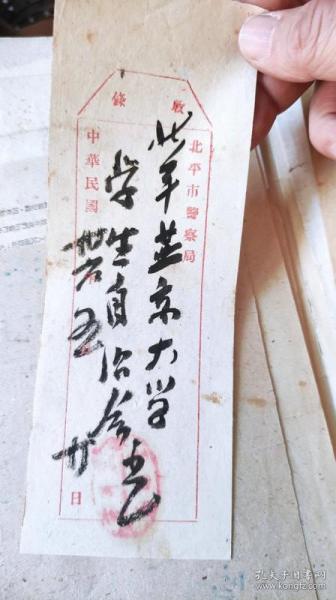 收條
北平市警察局
北平燕京大学
学生自治会
中華民國
五 廿 日
孔夫子旧书网